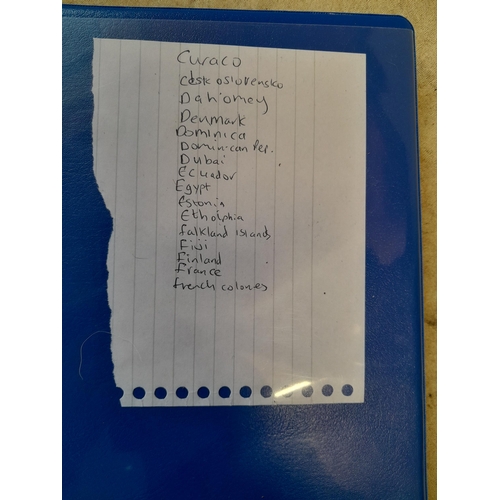 Curaco
Česk oslovensko
Dahomey
Denmark
Dominica
Dominican Rep.
Dubai
Ecuador
Egypt
Estonia
Ethoiphia
Falkland Islands
Fiji
Finland
France
French colonies